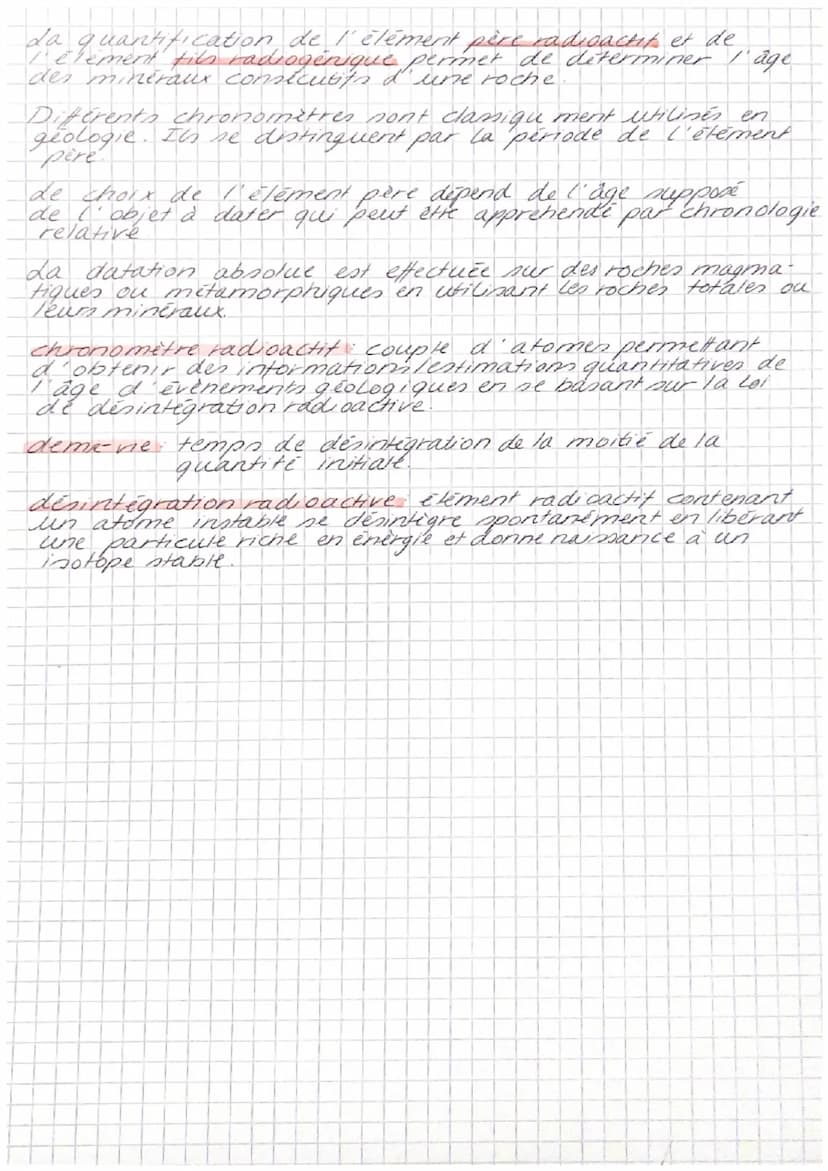 La quantification de l'élément père radioactif et de
l'élément fils radiogénique permet de déterminer l'âge
des minéraux consécutifs d'une roche.
Différents chronomètres sont classiqu ment utilisés en
géologie. Ils se distinguent par la période de l'élément
père.
Le choix de l'élément père dépend de l'âge supposé
de l'objet à dater qui peut être appréhendé par chronologie
relative
La datation absolue est effectuée sur des roches magma-
tiques ou métamorphiques en utilisant les roches totales ou
leurs minéraux.
chronomètre radioactif : couple d'atomes permettant
d'obtenir des informations/estimations quantitatives de
l'âge d'évènements géologiques en se basant sur la loi
de désintégration radioactive.
demi-vie : temps de désintégration de la moitié de la
quantité initiale.
désintégration radioactive : élément radioactif contenant
un atome instable se désintègre spontanément en libérant
une particule riche en énergie et donne naissance à un
isotope stable.